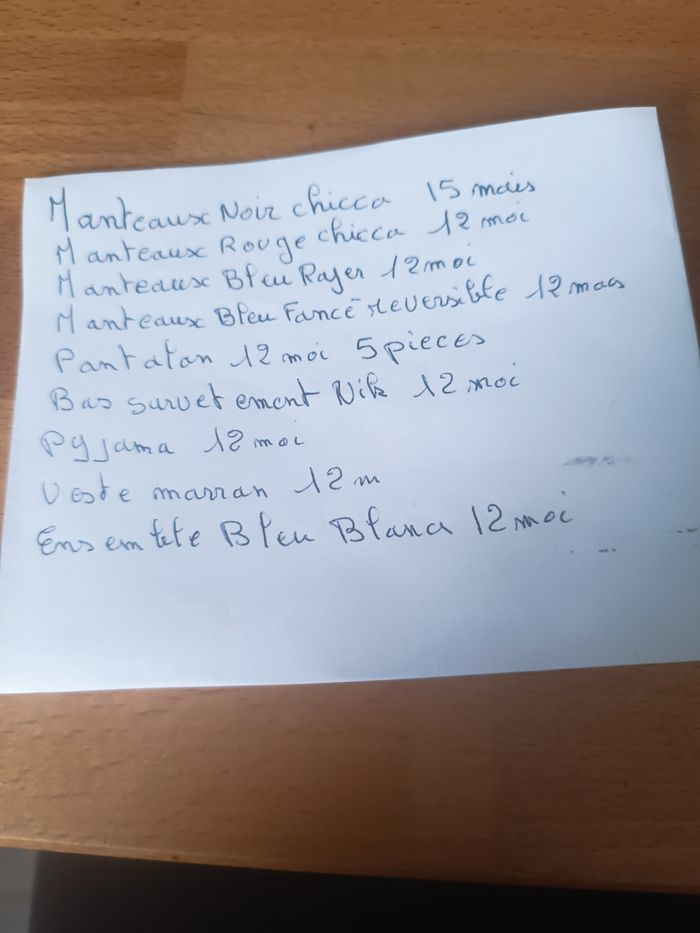 Manteaux Noir chicca 15 mois
Manteaux Rouge chicca 12 moi
Manteaux Bleu Rayer 12 moi
Manteaux Bleu Fancé reversible 12 mois
Pantalon 12 moi 5 pieces
Bas survetement Nik 12 moi
Pyjama 12 moi
Veste marran 12 m
Ensemble Bleu Blanc 12 moi